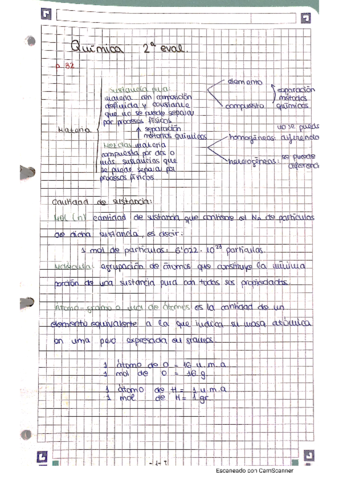 Química 2ª eval.
p. 82
Sustancia pura
materia con composición
definida y constante
que no se puede separar
por procesos físicos
elemento
compuesto
separación
métodos
químicos
Materia
separación
métodos químicos
Mezclas materia
compuesta por dos o
más sustancias que
se puede separar por
procesos físicos
homogéneas
no se puede
heterogéneas
se puede
Cantidad de sustancia:
Mol (n) cantidad de sustancia que contiene el NA de partículas
de dicha sustancia, es decir:
1 mol de partículas: 6'022 · 10²³ partículas.
Molécula: agrupación de átomos que constituye la mínima
porción de una sustancia pura con todas sus propiedades.
Átomo-gramo o mol de átomos es la cantidad de un
elemento equivalente a la que indica su masa atómica
en uma pero expresada en gramos.
1 átomo de O = 16 u.m.a
1 mol de O = 16 g
1 átomo de H = 1 u.m.a
1 mol de H = 1 gr
- 1 -
Escaneado con CamScanner